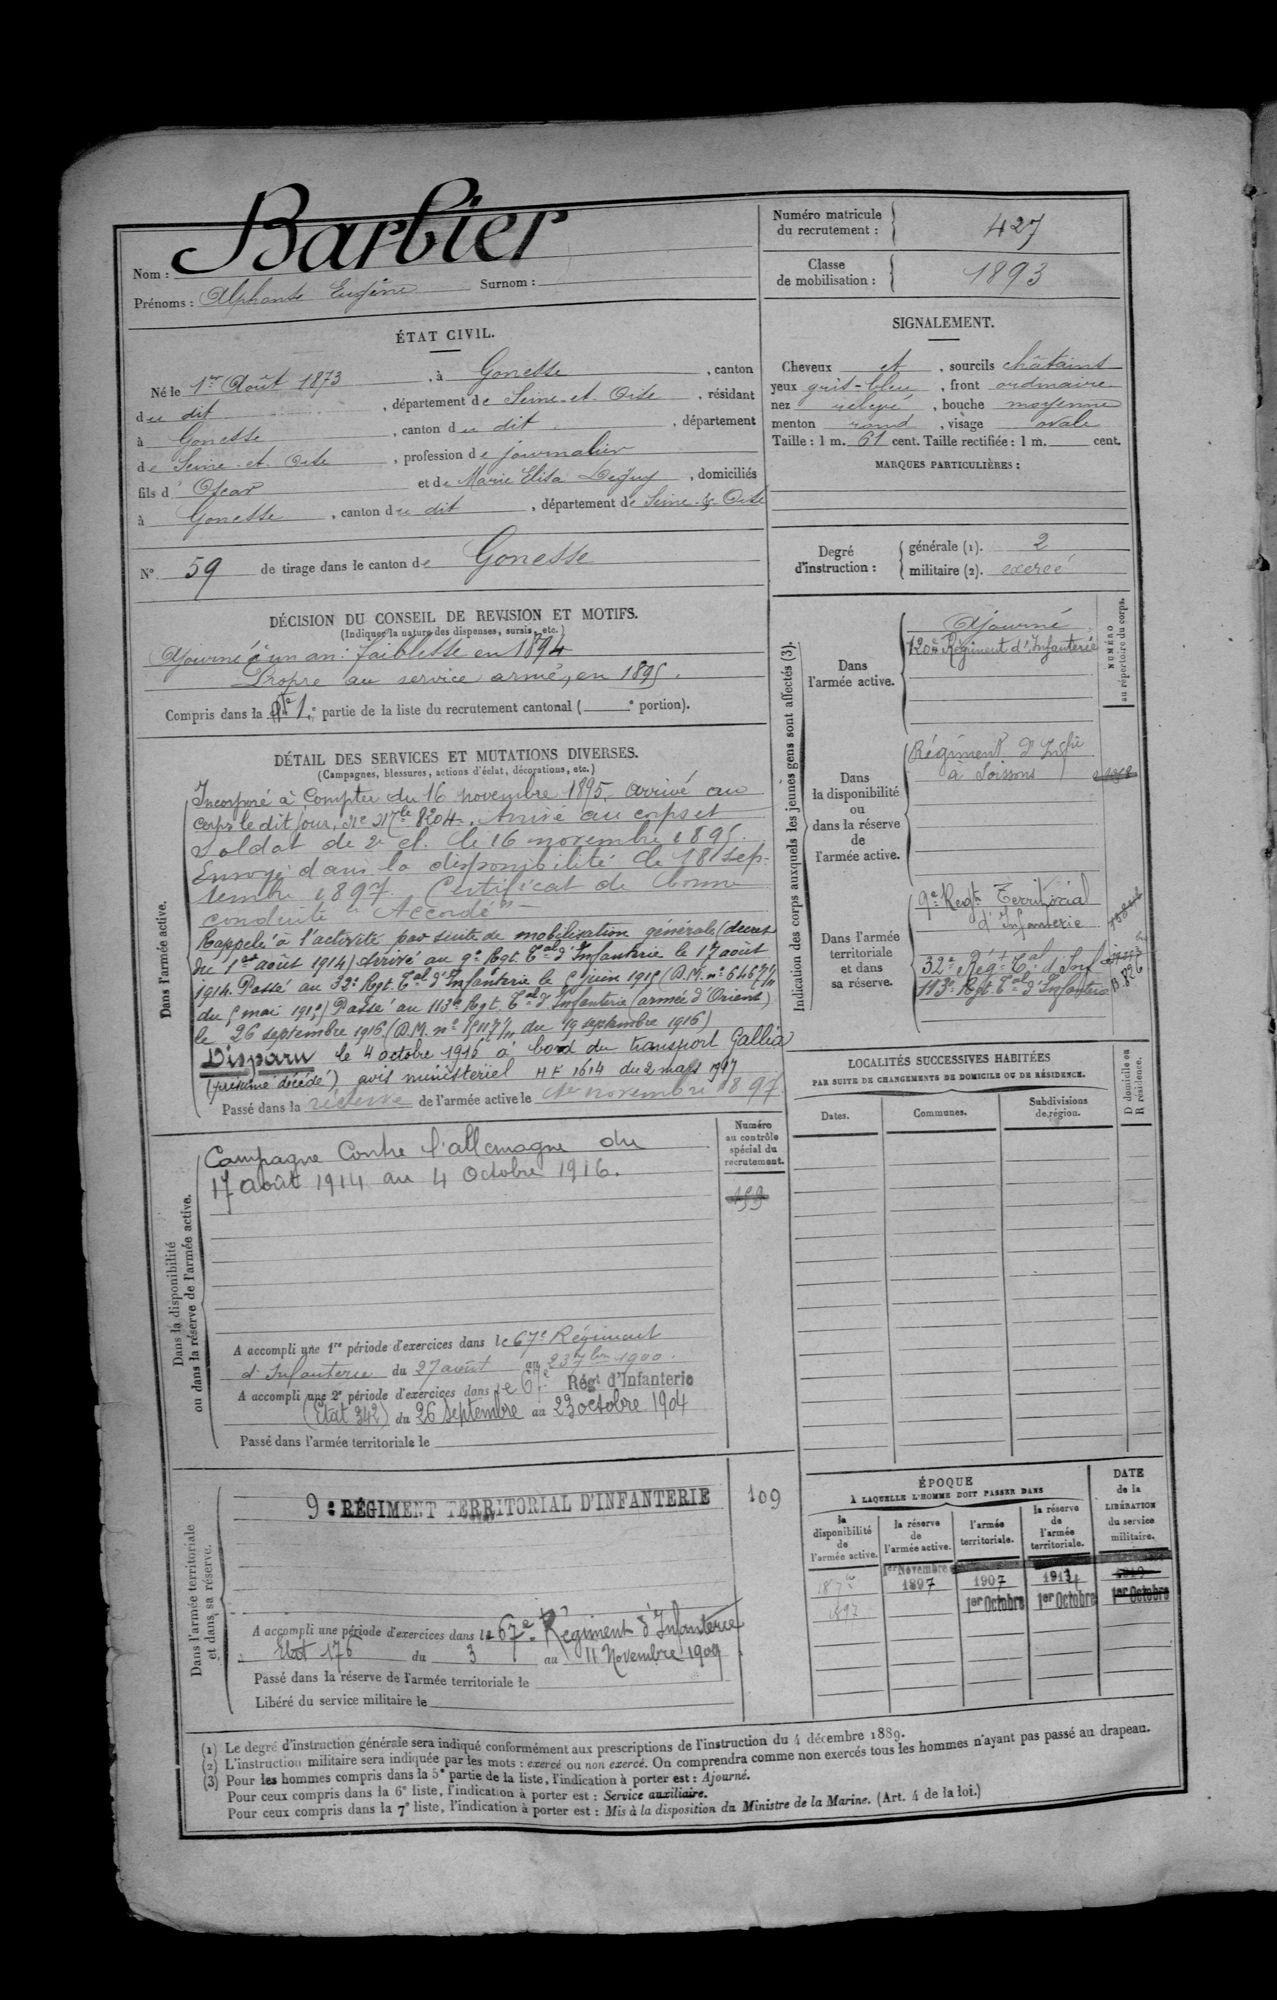 Nom : Barbier
Prénoms : Alphonse Eugène Surnom :
Numéro matricule du recrutement : 427
Classe de mobilisation : 1893
ÉTAT CIVIL.
Né le 1er Août 1873, à Gonesse, canton
du dit, département de Seine-et-Oise, résidant
à Gonesse, canton du dit, département
de Seine-et-Oise, profession de journalier
fils d' Oscar et de Marie Elisa, domiciliés
à Gonesse, canton du dit, département de Seine-&-Oise
N° 59 de tirage dans le canton de Gonesse
SIGNALEMENT.
Cheveux et, sourcils châtains
yeux gris-bleu, front ordinaire
nez relevé, bouche moyenne
menton rond, visage ovale
Taille : 1 m. 61 cent. Taille rectifiée : 1 m. cent.
MARQUES PARTICULIÈRES :
Degré d'instruction :
générale (1). 2
militaire (2). exercé
DÉCISION DU CONSEIL DE REVISION ET MOTIFS.
(Indiquer la nature des dispenses, sursis, etc.)
Ajourné à un an : faiblesse en 1894
Propre au service armé, en 1895.
Compris dans la 1e partie de la liste du recrutement cantonal ( e portion).
DÉTAIL DES SERVICES ET MUTATIONS DIVERSES.
(Campagnes, blessures, actions d'éclat, décorations, etc.)
Dans l'armée active.
Incorporé à compter du 16 novembre 1895, arrivé au
corps le dit jour, No Mle 8204. Arrivé au corps et
soldat de 2e cl. le 16 novembre 1895.
Envoyé dans la disponibilité le 18 sep-
tembre 1897. Certificat de bonne
conduite "Accordé"
Rappelé à l'activité par suite de mobilisation générale (décret
du 1er août 1914) Arrivé au 9e Regt. Tal d'Infanterie le 17 août
1914. Passé au 32e Regt. Tal d'Infanterie le 5 juin 1915 (D.M. n°
du 5 mai 1915) Passé au 113e Regt. Tal d'Infanterie (armée d'Orient)
le 26 septembre 1916 (D.M. n° du 19 septembre 1916)
Disparu le 4 octobre 1916 à bord du transport Gallia
(présumé décédé) avis ministeriel HF 1614 du 2 mars 1917
Passé dans la réserve de l'armée active le 1er novembre 1897
Indication des corps auxquels les jeunes gens sont affectés (3).
NUMÉRO au répertoire du corps.
Dans l'armée active.
Ajourné
120e Régiment d'Infanterie
Dans la disponibilité ou dans la réserve de l'armée active.
Régiment d'Infrie
à Soissons
Dans l'armée territoriale et dans sa réserve.
9e Regt Territorial
d'Infanterie
32e Régt Tal d'Inf
113e Regt Tal d'Infanterie
LOCALITÉS SUCCESSIVES HABITÉES
PAR SUITE DE CHANGEMENTS DE DOMICILE OU DE RÉSIDENCE.
Dates. Communes. Subdivisions de région. D domicile ou R résidence.
Dans la disponibilité ou dans la réserve de l'armée active.
Campagne contre l'allemagne du
17 août 1914 au 4 Octobre 1916.
Numéro au contrôle spécial du recrutement.
159
A accompli une 1re période d'exercices dans le 67e Régiment
d'Infanterie du 27 août au 23 7bre 1900.
A accompli une 2e période d'exercices dans le 67e Régt d'Infanterie
(Etat 342) du 26 Septembre au 23 octobre 1904
Passé dans l'armée territoriale le
Dans l'armée territoriale et dans sa réserve.
9e RÉGIMENT TERRITORIAL D'INFANTERIE 109
A accompli une période d'exercices dans le 67e Régiment d'Infanterie
Etat 176 du 3 au 11 Novembre 1909
Passé dans la réserve de l'armée territoriale le
Libéré du service militaire le
ÉPOQUE
À LAQUELLE L'HOMME DOIT PASSER DANS
la disponibilité de l'armée active.
la réserve de l'armée active.
l'armée territoriale.
la réserve de l'armée territoriale.
DATE de la LIBÉRATION du service militaire.
1er Novembre 1897
1907 1er Octobre
1er Octobre
1919 1er Octobre
(1) Le degré d'instruction générale sera indiqué conformément aux prescriptions de l'instruction du 4 décembre 1889.
(2) L'instruction militaire sera indiquée par les mots : exercé ou non exercé. On comprendra comme non exercés tous les hommes n'ayant pas passé au drapeau.
(3) Pour les hommes compris dans la 5e partie de la liste, l'indication à porter est : Ajourné.
Pour ceux compris dans la 6e liste, l'indication à porter est : Service auxiliaire.
Pour ceux compris dans la 7e liste, l'indication à porter est : Mis à la disposition du Ministre de la Marine. (Art. 4 de la loi.)